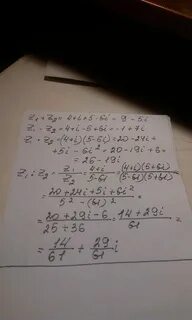 Z₁+Z₂=4+i+5-6i=9-5i
Z₁-Z₂=4+i-5+6i=-1+7i
Z₁·Z₂=(4+i)(5-6i)=20-24i+
+5i-6i²=20-19i+6=
=26-19i
Z₁:Z₂=Z₁/Z₂=(4+i)/(5-6i)=(4+i)(5+6i)/(5-6i)(5+6i)=
=(20+24i+5i+6i²)/(5²-(6i)²)=
=(20+29i-6)/(25+36)=(14+29i)/61=
=14/61+29/61i